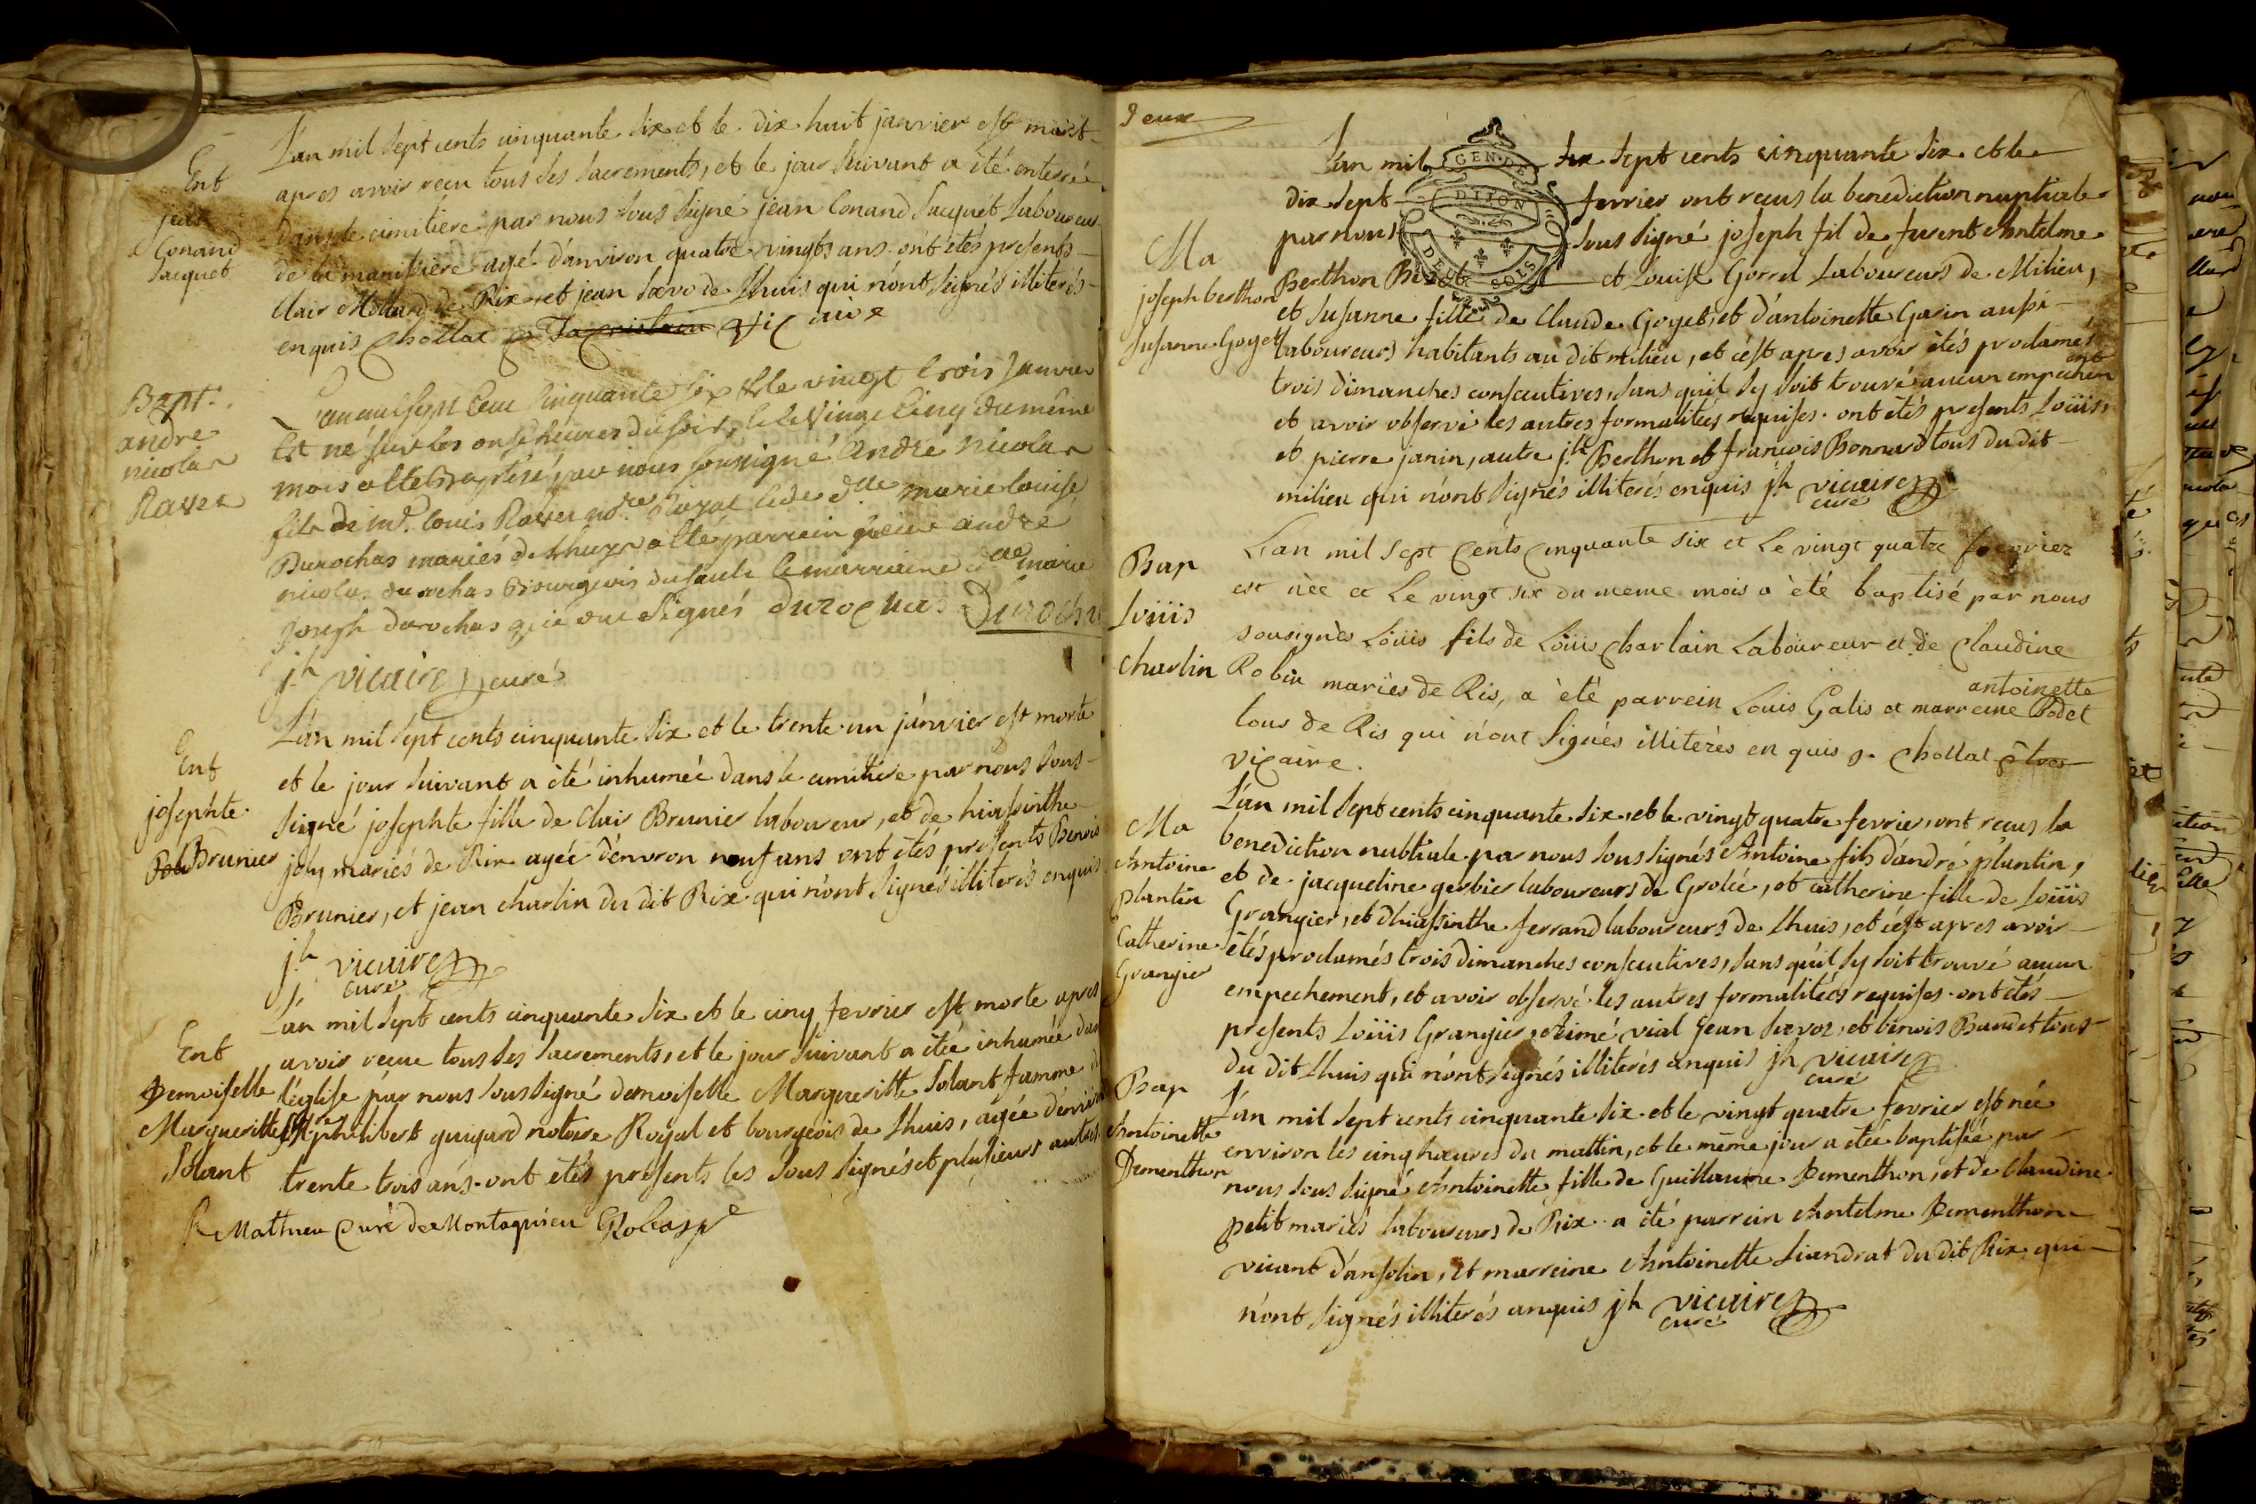 Ent
jean
Conand
Jacquet
L'an mil sept cents cinquante six et le dix huit janvier est mort
apres avoir recu tous ses sacrements, et le jour suivant a été enterré
dans le cimitiere par nous sous signé jean Conand Jacquet laboureur
de la agé d'anviron quatre vingts ans ont étés presents
Clair Mollard de Rix et jean Savo de Lhuis qui n'ont signés illiterés
enquis Chollat vicaire
Bapt.
andré
nicolas
Raver
L'an mil sept cent cinquante six & le vingt trois Janvier
Est né sur les onse heures du soir, & le vingt cinq du même
mois a été baptisé par nous soussigné André nicolas
fils de mr. louis Raver nore. Royal & de dlle marie louise
Durochas mariés de Lhuys a été parrain sieur andré
nicolas durochas Bourgeois du sault & marraine dlle marie
Joseph durochas qui ont signés durochas Durochas
jh vicaire curé
Ent
josephte
Brunier
L'an mil sept cents cinquante six et le trente un janvier est morte
et le jour suivant a été inhumée dans le cimitiere par nous sous
signé josephte fille de Clair Brunier laboureur, et de hiassinthe
joly mariés de Rix agée d'environ neuf ans ont étés presents Benoit
Brunier, et jean charlin du dit Rix qui n'ont signés illiterés enquis
jh vicaire
curé
Ent
Demoiselle
Margueritte
Solant
L'an mil sept cents cinquante six et le cinq fevrier est morte apres
avoir recue tous ses sacrements, et le jour suivant a étée inhumée dans
l'église par nous sous signé demoiselle Margueritte Solant famme de
Mre philibert guigard notaire Royal et bourgeois de Lhuis, agée d'environ
trente trois ans. ont étés presents les sous signés et plusieurs autres
Matthieu Curé de Montagnieu
Deux
GEN. DE
DIJON
DEUX SOLS
Ma
joseph berthon
Susanne Goyet
L'an mil sept cents cinquante six et le
dix sept fevrier ont recus la benediction nuptiale
par nous sous signé joseph fil de furent Antelme
Berthon et Louise Gorrel Laboureurs de Milieu,
et Susanne fille de Claude Goyet, et d'antoinette Garin aussi
laboureurs habitants au dit milieu, et c'est apres avoir étés proclamés
trois dimanches consecutives, sans qu'il s'y soit trouvé aucun empechement
et avoir observé les autres formalitées requises. ont étés presents Loüis,
et pierre janin, autre jh Berthon et francois Bonnard tous du dit
milieu qui n'ont signés illiterés enquis jh vicaire
curé
Bap
Loüis
Charlin
L'an mil sept Cents Cinquante six et Le vingt quatre fevrier
est nèe et Le vingt six du meme mois a èté baptisé par nous
sousignès Loüis fils de Loüis Charlain Laboureur et de Claudine
Robin mariès de Ris, a èté parrein Louis Galis et marreine antoinette Bodet
tous de Ris qui n'ont signés illiterès en quis Chollat
vicaire.
Ma
Antoine
plantin
Catherine
Grangier
L'an mil sept cents cinquante six, et le vingt quatre fevrier, ont recus la
benediction nubtiale par nous sous signés Antoine fils d'andré plantin,
et de jacqueline gerbier laboureurs de Grolée, et catherine fille de Loüis
Grangier, et d'hiassinthe ferrand laboureurs de Lhuis, et c'est apres avoir
étés proclamés trois dimanches consecutives, sans qu'il s'y soit trouvé aucun
empechement, et avoir observé les autres formalitées requises. ont étés
presents Loüis Grangier, Aimé vial jean Savoz, et benois Baudet tous
du dit Lhuis qui n'ont signés illiterés enquis jh vicaire
curé
Bap
Antoinette
Dementhon
L'an mil sept cents cinquante six et le vingt quatre fevrier est née
environ les cinq hœures du mattin, et le même jour a étée baptisée par
nous sous signé Antoinette fille de Guillaume Dementhon, et de Claudine
petit mariés laboureurs de Rix a été parrein Antelme Dementhon
vivant d'ansolin, et marreine Antoinette Liandrat du dit Rix qui
n'ont signés illiterés enquis jh vicaire
curé